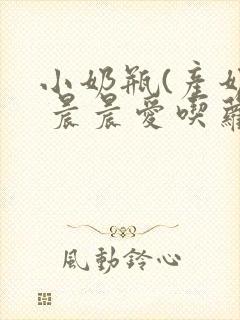 小奶瓶(產奶
晨晨愛喫蘿
風動鈴心